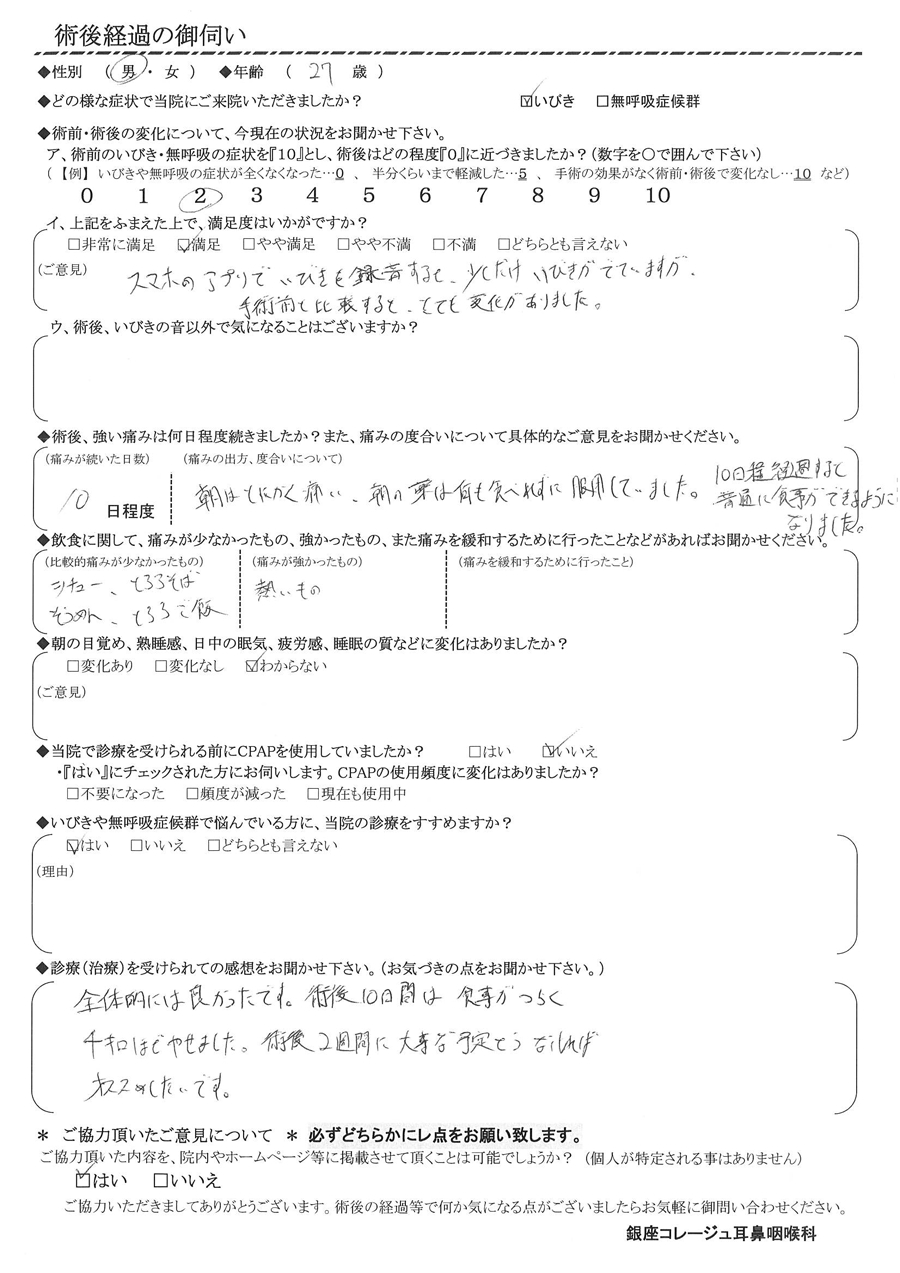 術後経過の御伺い
◆性別 （ 男 ・ 女 ） ◆年齢 （ 27 歳 ）
◆どの様な症状で当院にご来院いただきましたか？ ☑いびき □無呼吸症候群
◆術前・術後の変化について、今現在の状況をお聞かせ下さい。
ア、術前のいびき・無呼吸の症状を『10』とし、術後はどの程度『0』に近づきましたか？（数字を〇で囲んで下さい）
（ 【例】 いびきや無呼吸の症状が全くなくなった…0 、 半分くらいまで軽減した…5 、 手術の効果がなく術前・術後で変化なし…10 など）
0 1 2 3 4 5 6 7 8 9 10
イ、上記をふまえた上で、満足度はいかがですか？
□非常に満足 ☑満足 □やや満足 □やや不満 □不満 □どちらとも言えない
（ご意見） スマホのアプリでいびきを録音すると、少しだけいびきがでていますが、
手術前と比較すると、とても変化がありました。
ウ、術後、いびきの音以外で気になることはございますか？
◆術後、強い痛みは何日程度続きましたか？また、痛みの度合いについて具体的なご意見をお聞かせください。
（痛みが続いた日数） （痛みの出方、度合いについて）
10 日程度 朝はとにかく痛い、朝の薬は何も食べれずに服用していました。 10日程経過すると
普通に食事ができるように
なりました。
◆飲食に関して、痛みが少なかったもの、強かったもの、また痛みを緩和するために行ったことなどがあればお聞かせください。
（比較的痛みが少なかったもの） （痛みが強かったもの） （痛みを緩和するために行ったこと）
シチュー、とろろそば 熱いもの
そうめん、とろろご飯
◆朝の目覚め、熟睡感、日中の眠気、疲労感、睡眠の質などに変化はありましたか？
□変化あり □変化なし ☑わからない
（ご意見）
◆当院で診療を受けられる前にCPAPを使用していましたか？ □はい ☑いいえ
・『はい』にチェックされた方にお伺いします。CPAPの使用頻度に変化はありましたか？
□不要になった □頻度が減った □現在も使用中
◆いびきや無呼吸症候群で悩んでいる方に、当院の診療をすすめますか？
☑はい □いいえ □どちらとも言えない
（理由）
◆診療（治療）を受けられての感想をお聞かせ下さい。（お気づきの点をお聞かせ下さい。）
全体的には良かったです。術後10日間は 食事がつらく
4キロほどやせました。術後2週間に大事な予定とうなければ
オススめしたいです。
＊ ご協力頂いたご意見について ＊ 必ずどちらかにレ点をお願い致します。
ご協力頂いた内容を、院内やホームページ等に掲載させて頂くことは可能でしょうか？ （個人が特定される事はありません）
☑はい □いいえ
ご協力いただきましてありがとうございます。術後の経過等で何か気になる点がございましたらお気軽に御問い合わせください。
銀座コレージュ耳鼻咽喉科